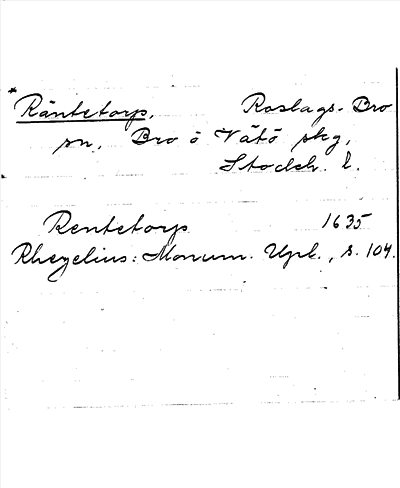 * Räntetorp. Roslags-Bro
sn, Bro o Vätö skg,
Stockh. l.
Rentetorp 1635
Rhezelius: Monum. Upl., s. 104.